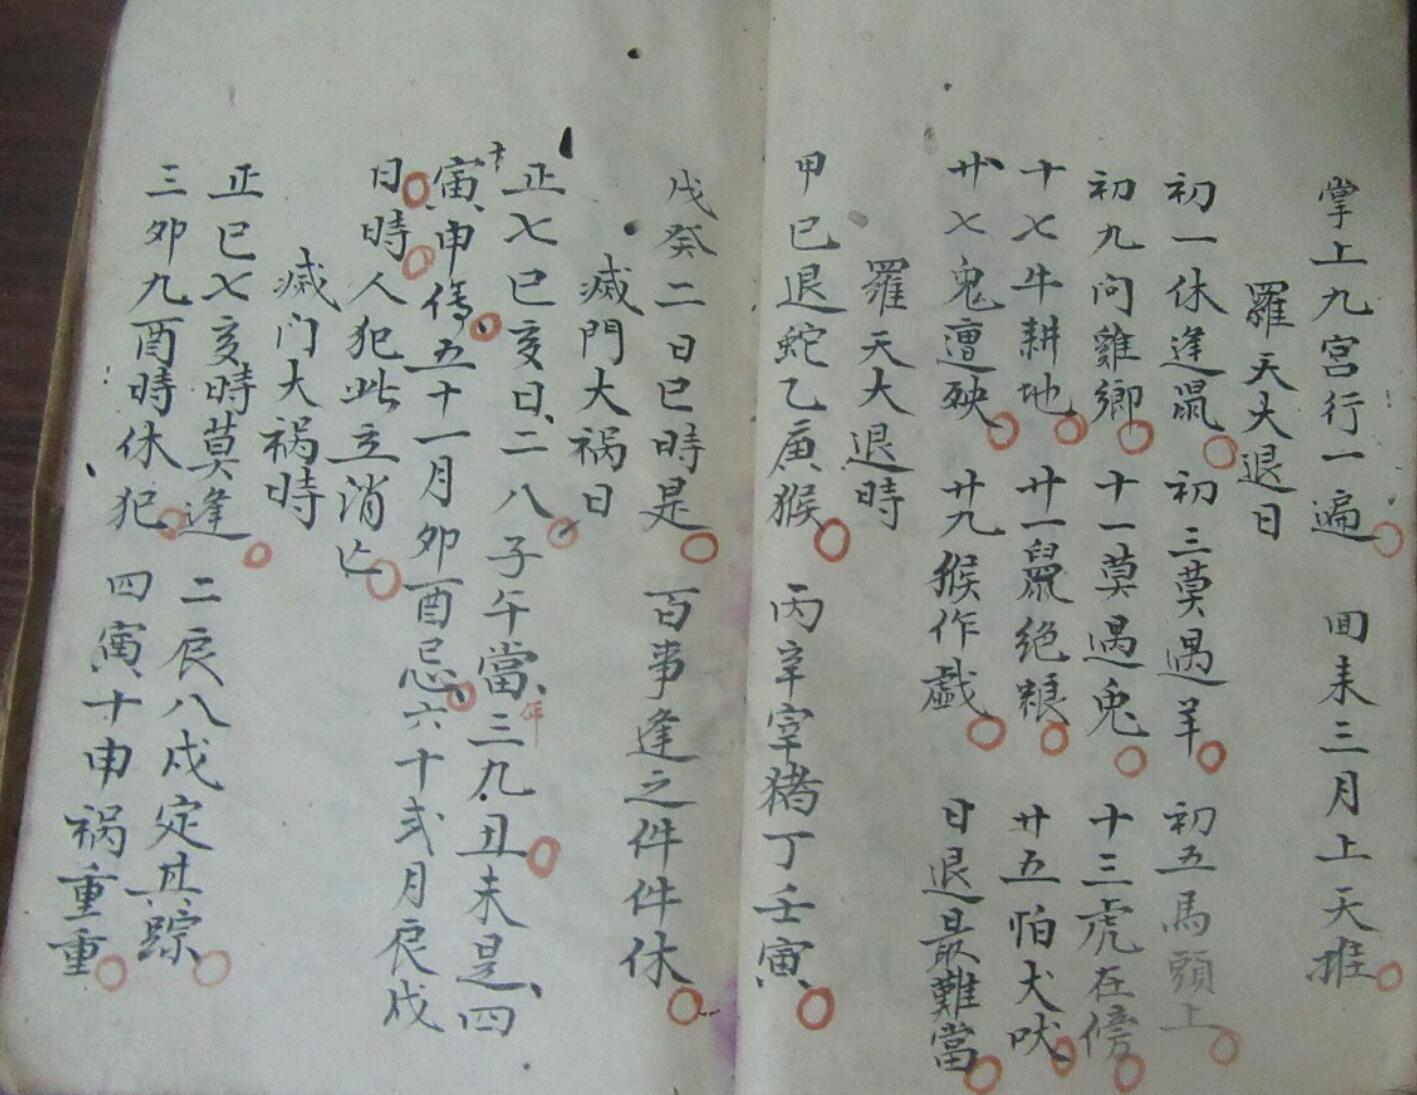 掌上九宮行一遍　回来三月上天推
羅天大退日
初一休逢鼠　初三莫遇羊　初五馬頭上
初九问雞鄉　十一莫遇兎　十三虎在傍
十七牛耕地　廿一鼠绝粮　廿五怕犬吠
廿七兎遭殃　廿九猴作戯　日退最難當
羅天大退時
甲巳退蛇乙庚猴　丙辛宰猪丁壬寅
戊癸二日巳時是　百事逢之件件休
滅門大祸日
正七巳亥日二八　子午當年三九丑未是四
十寅申傳五十一月卯酉忌六十弍月辰戍
日時人犯此立消亡
滅门大祸時
正巳七亥時莫逢　二辰八戍定其踪
三卯九酉時休犯　四寅十申祸重重